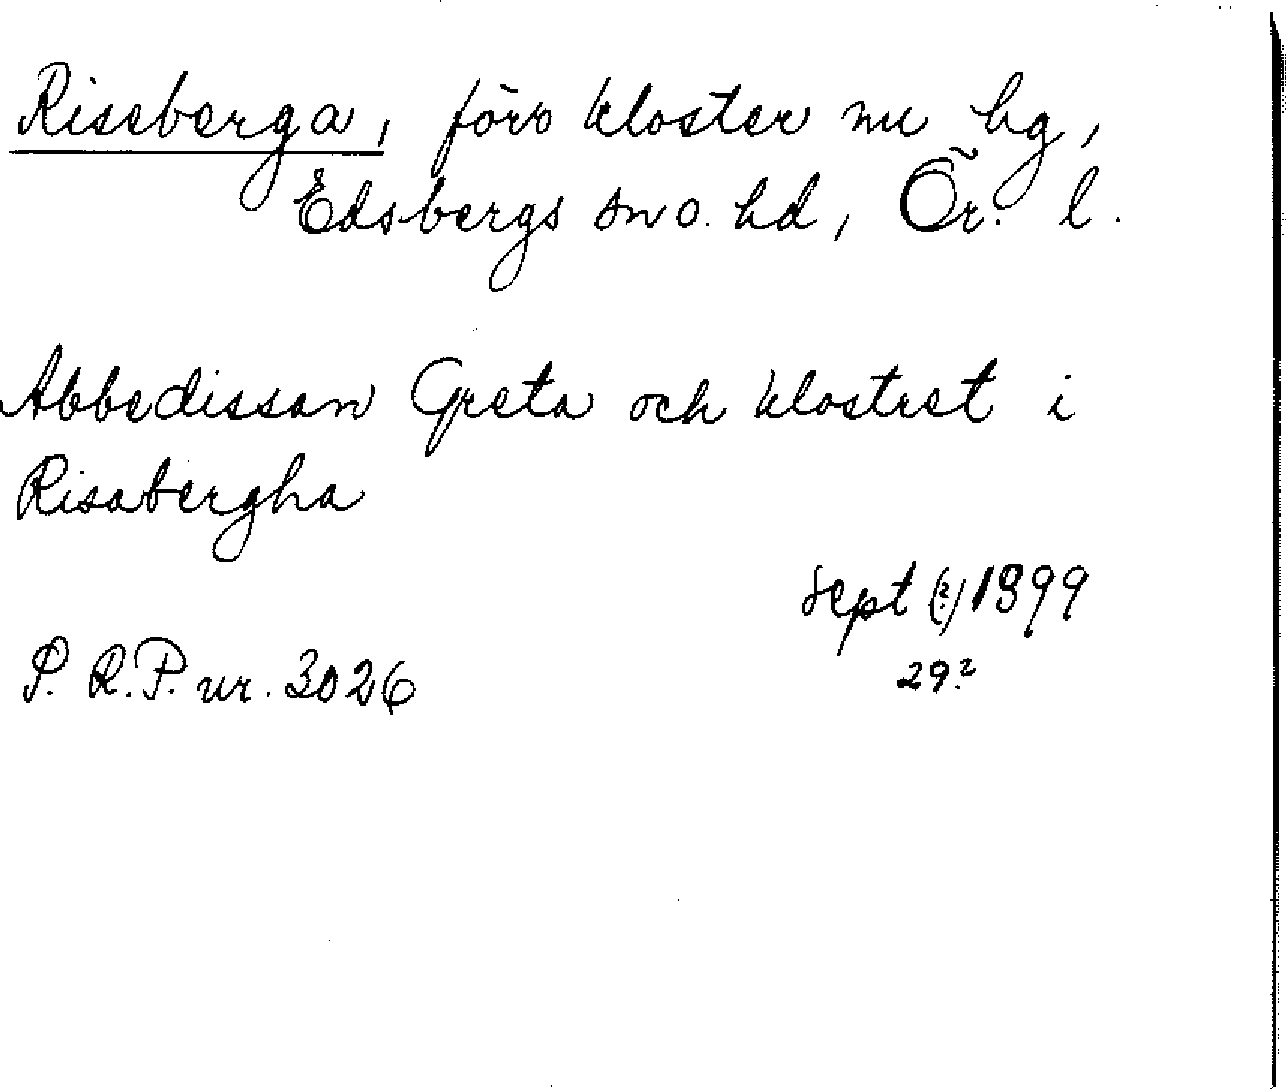 Riseberga, förv kloster nu hg,
Edsbergs sn o. hd, Ör. l.
Abbedissan Greta och klostret i
Risabergha
sept (?) 1399
29?
S. R. P. nr. 3026